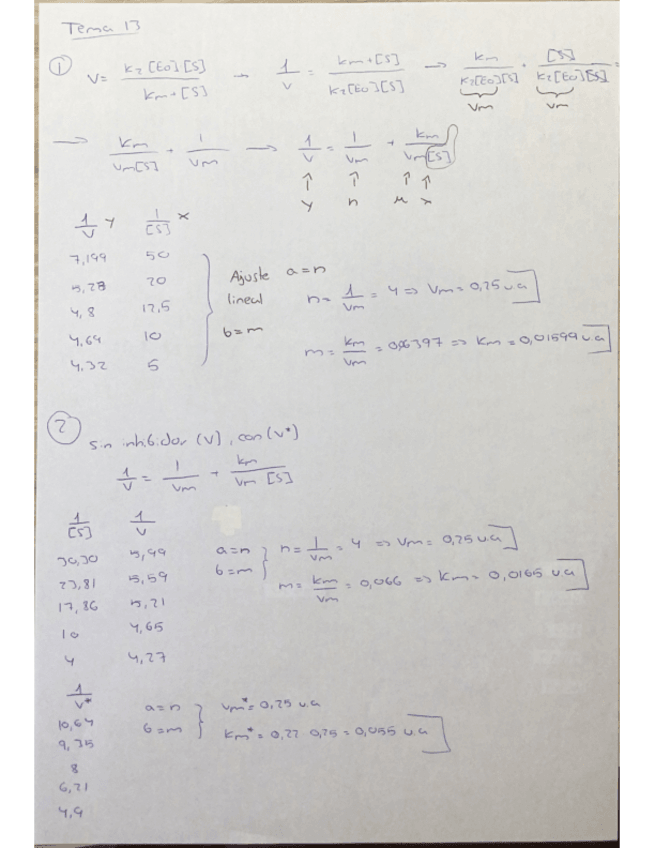 Tema 13
① V= K2[E0][S] / Km+[S] → 1/V = Km+[S] / K2[E0][S] → Km / K2[E0][S] + [S] / K2[E0][S] =
Vm Vm
→ Km / Vm[S] + 1 / Vm → 1/V = 1/Vm + Km / Vm[S]
↑ ↑ ↑ ↑
y n m x
1/V y 1/[S] x
7,199 50
5,28 20
4,8 12,5
4,64 10
4,32 5
Ajuste a=n
lineal
b=m
n= 1/Vm = 4 => Vm= 0,25 u.a
m= Km/Vm = 0,06397 => Km = 0,01599 u.a
②
Sin inhibidor (V), con (V*)
1/V = 1/Vm + Km / Vm [S]
1/[S] 1/V
30,30 5,99
23,81 5,59
17,86 5,21
10 4,65
4 4,27
a=n
b=m
n= 1/Vm = 4 => Vm= 0,25 u.a
m= Km/Vm = 0,066 => Km= 0,0165 u.a
1/V*
10,64
9,35
8
6,21
4,9
a=n
b=m
Vm*= 0,25 u.a
Km* = 0,22 0,25 = 0,055 u.a